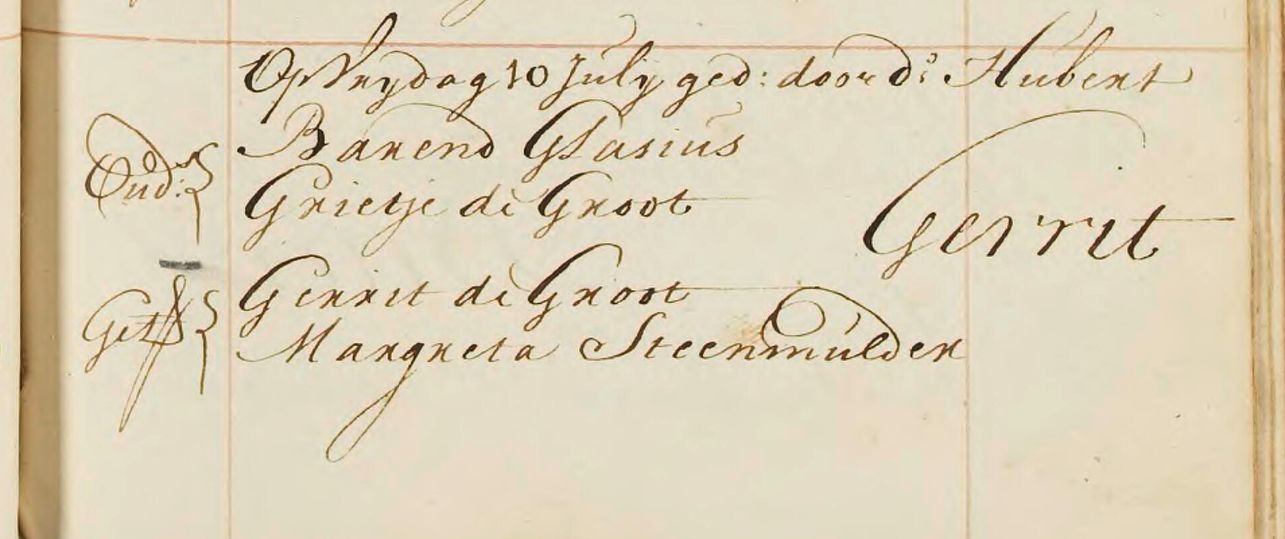 Op Vrydag 10 July ged: door Ds Hubert
Oud: Barend Glasius
Grietje de Groot
Gerrit
Get: Gerrit de Groot
Margreta Steenmulder